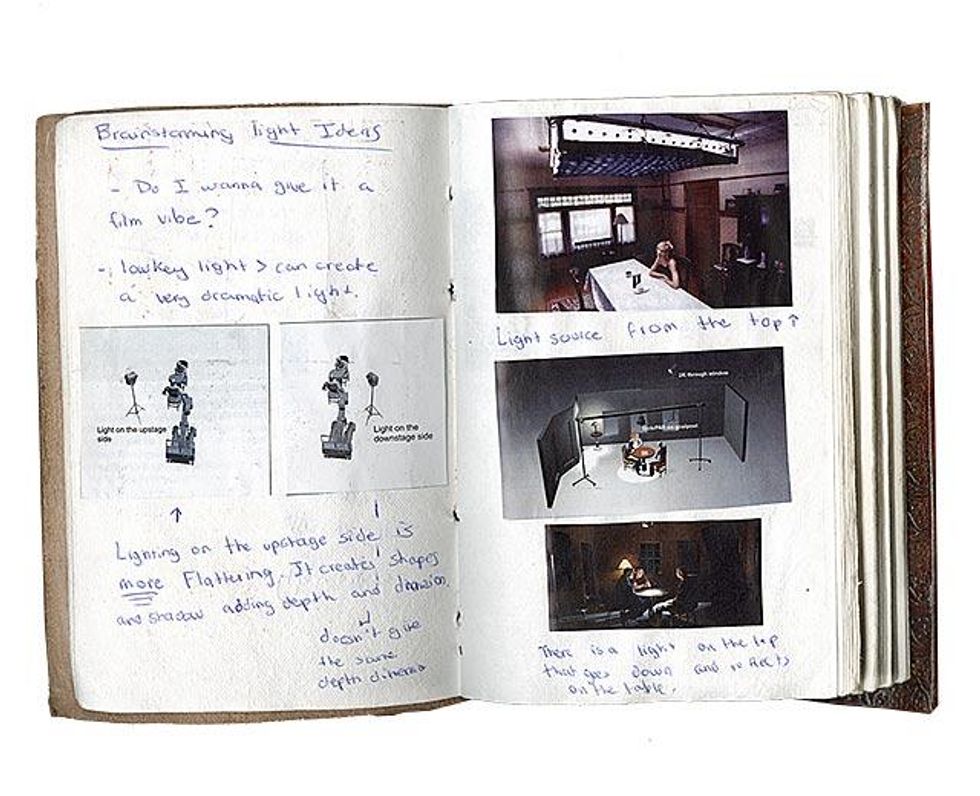 Brainstorming light Ideas
- Do I wanna give it a
film vibe?
- lowkey light > can create
a very dramatic light.
Light on the upstage
side
Light on the
downstage side
↑
Lighting on the upstage side is
more Flattering. It creates shapes
and shadow adding depth and
doesn't give
the same
depth
Light source from the top ↑
2K through window
There is a light on the top
that goes down and reflects
on the table.